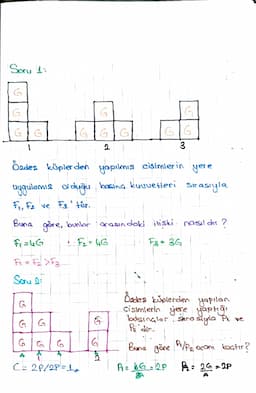 Soru 1:
G
G
G G
G
G G G
G
G G
1 2 3
Özdeş küplerden yapılmış cisimlerin yere
uygulamış olduğu basınç kuvvetleri sırasıyla
F₁, F₂ ve F₃'tür.
Buna göre, bunlar arasındaki ilişki nasıldır?
F₁=4G F₂=4G F₃=3G
F₁=F₂>F₃
Soru 2:
G
G G
G G G
G
G
Özdeş küplerden yapılan
cisimlerin yere yaptığı
basınçlar sırasıyla P₁ ve
P₂'dir.
Buna göre P₁/P₂ oranı kaçtır?
C = 2P/2P = 1
P₁ = 6G = 2P
3A
P₂ = 2G = 2P
A